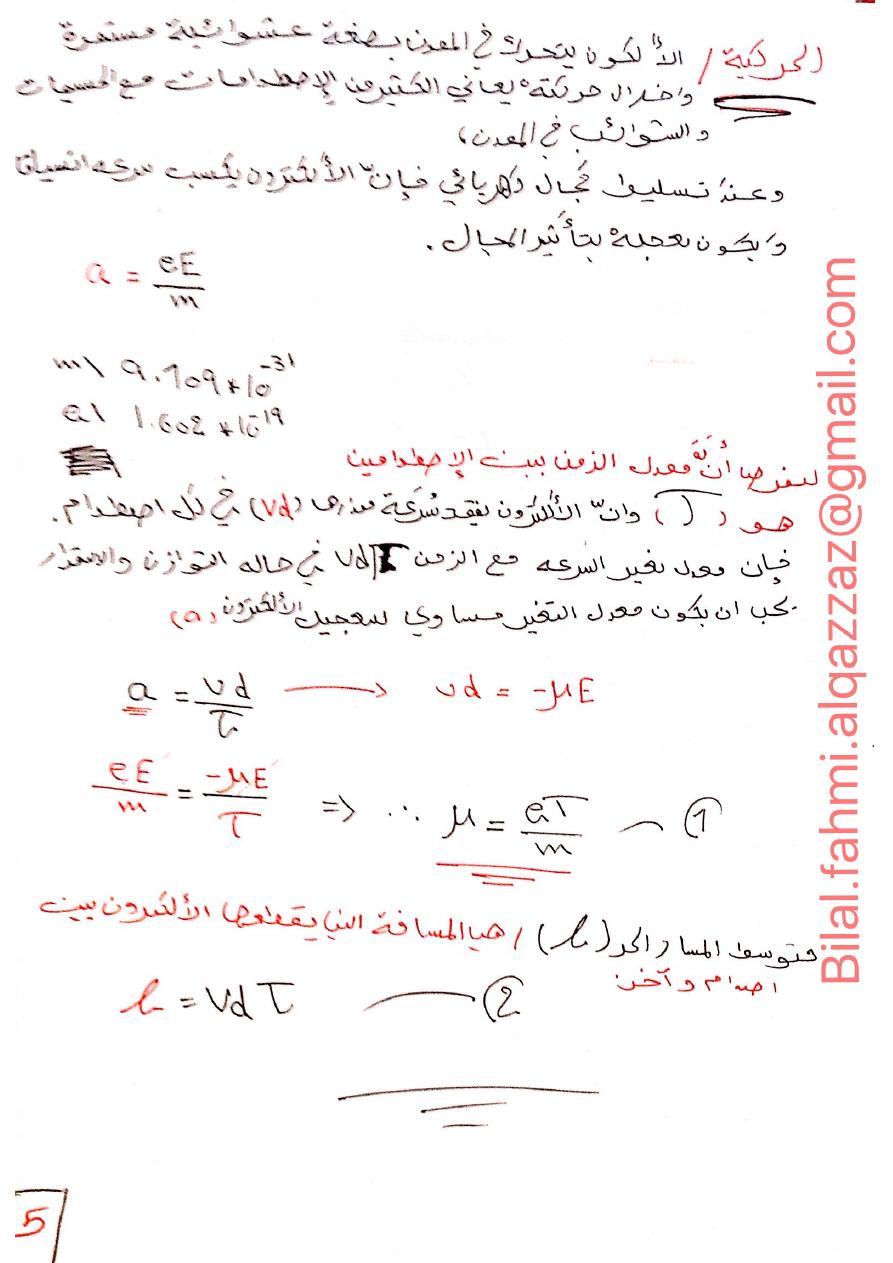 الحركية / الألكون يتحرك في المعدن بصغة عشوائية مستمرة
واخلال حركتة يعاني الكثير من الإصطدامات مع الجسيمات
والشوائب في المعدن،
وعند تسليط مجال كهربائي فإنّ الألكترون يكسب سرعه انسياق
ويكون تعجيلة بتأثير المجال.
a = eE/m
m\ 9.109*10^-31
e\ 1.602*10^-19
لنفرض أنّة معدل الزمن بين الإصطدامين
هو (τ) وانّ الألكترون يفقد سُرعة مقدارها (vd) في كل اصطدام.
فإن معدل تغير السرعه مع الزمن vd/τ في حاله التوازن والاستقرار
يجب ان يكون معدل التغير مساوي لتعجيل الألكترون (a)
a = vd/τ → vd = -μE
eE/m = -μE/τ ⇒ ∴ μ = eτ/m — 1
متوسط المسار الحر (L) / هيا المسافة التيا يقطعها الألكترون بين
اصدام وآخر
L = vd τ — 2
5
Bilal.fahmi.alqazzaz@gmail.com